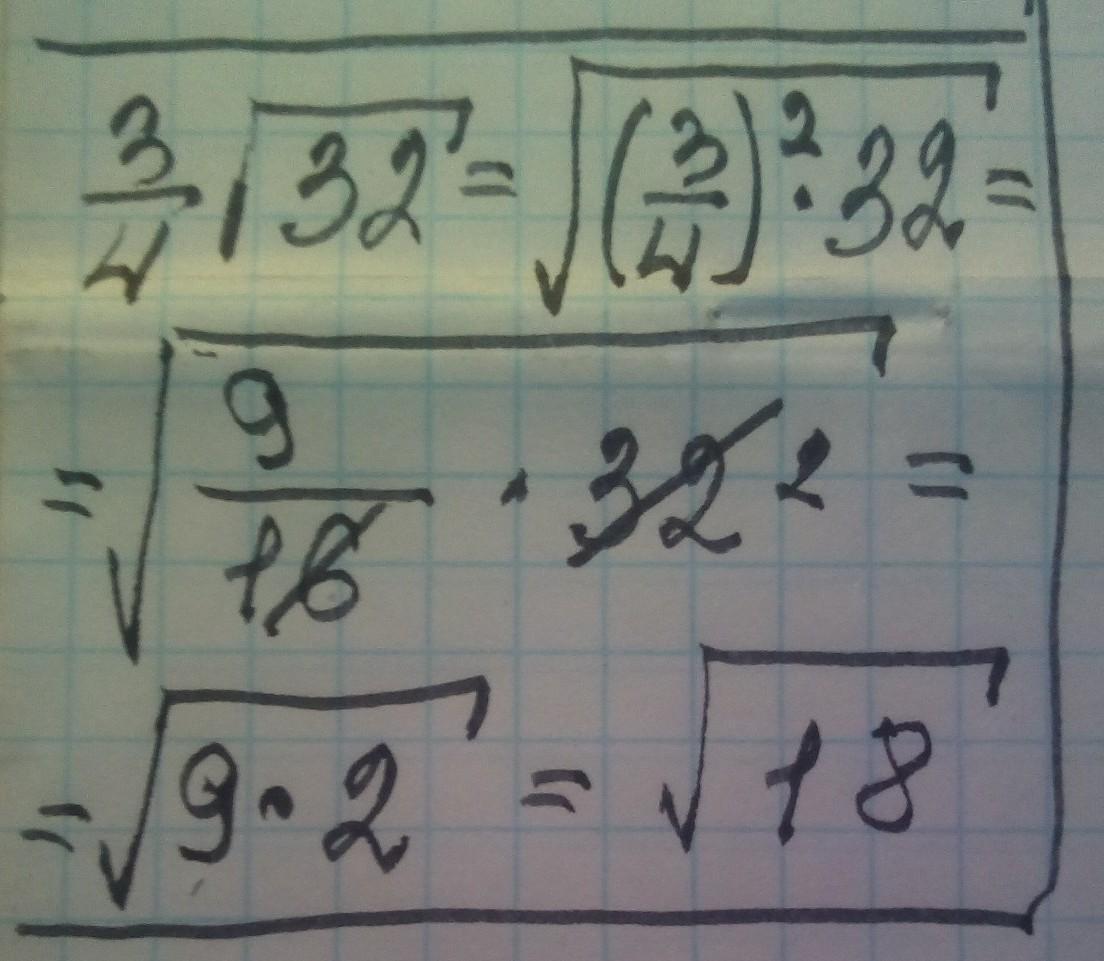 3/4 √32 = √((3/4)² · 32) =
= √(9/16 · 32 2) =
= √(9 · 2) = √18